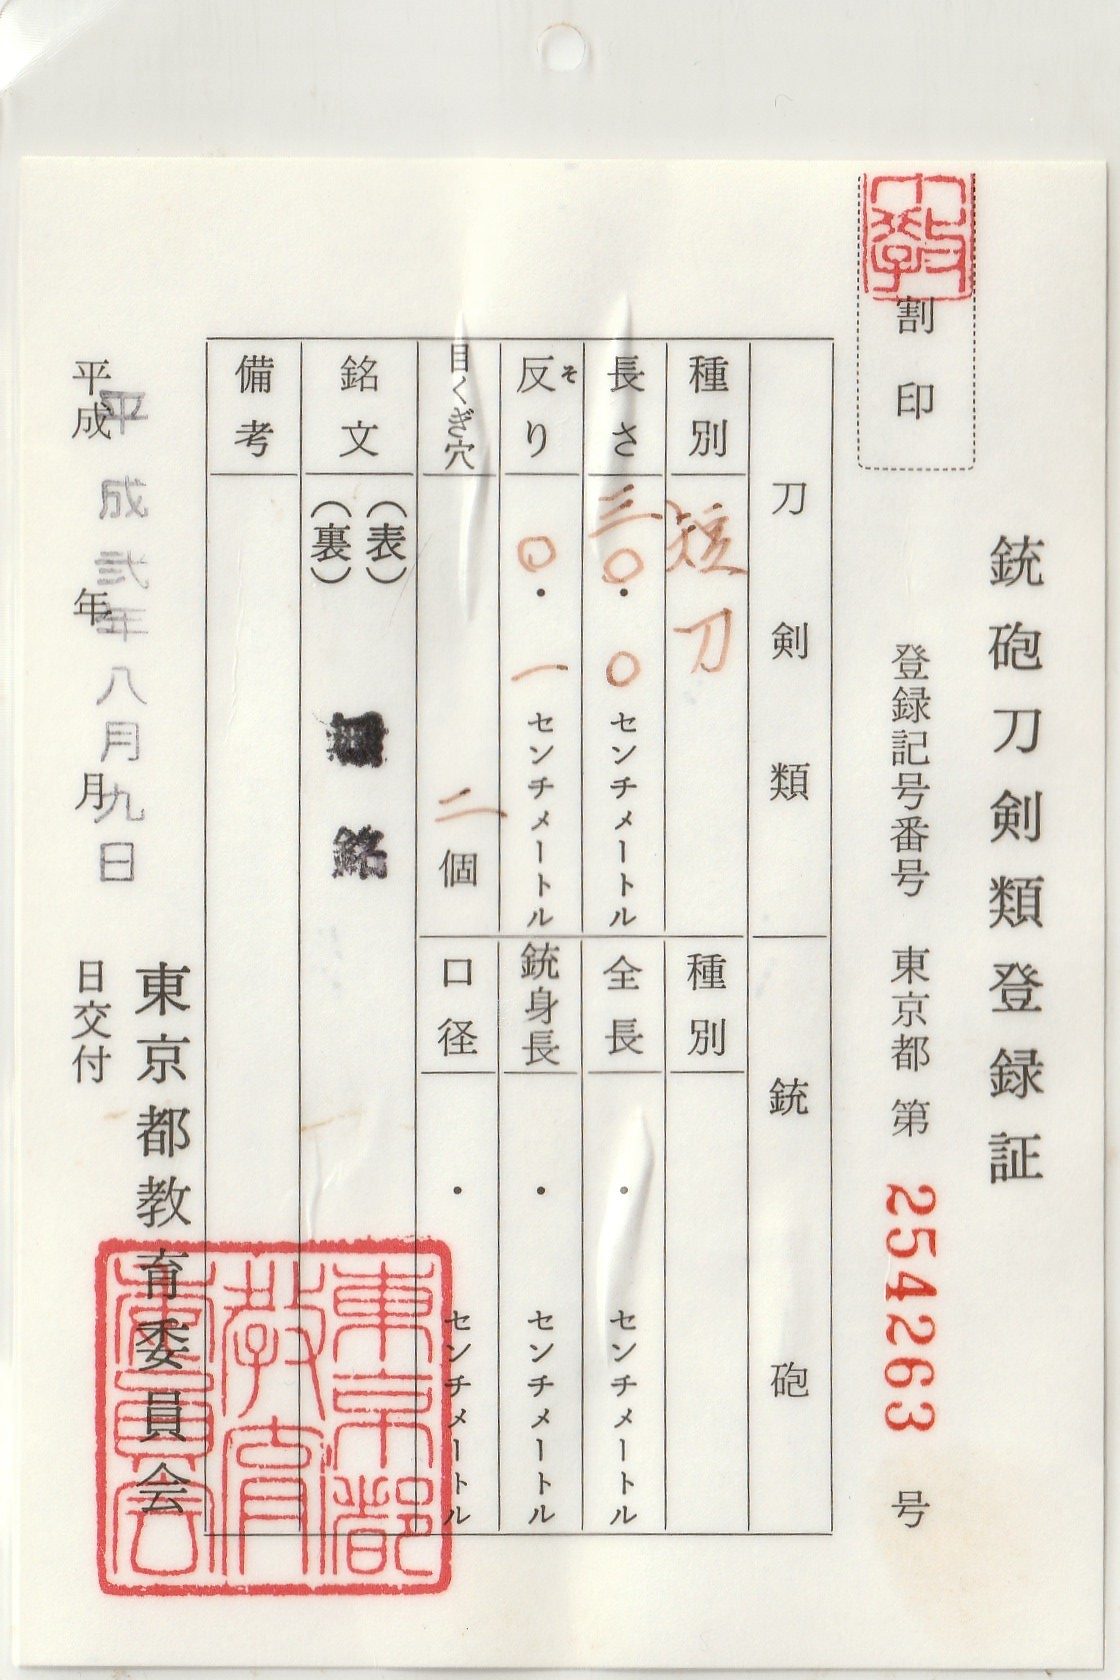 銃砲刀剣類登録証
割印
教
登録記号番号 東京都 第 254263 号
刀剣類
銃砲
種別 短刀
種別
長さ 三〇・〇 センチメートル
全長 ・ センチメートル
反り そ 〇・一 センチメートル
銃身長 ・ センチメートル
目くぎ穴 二個
口径 ・ センチメートル
銘文 (表)
(裏)
無銘
備考
東京都教育委員会
東京都
教育
委員会
平成 年 月 日交付
平成弐年八月九日